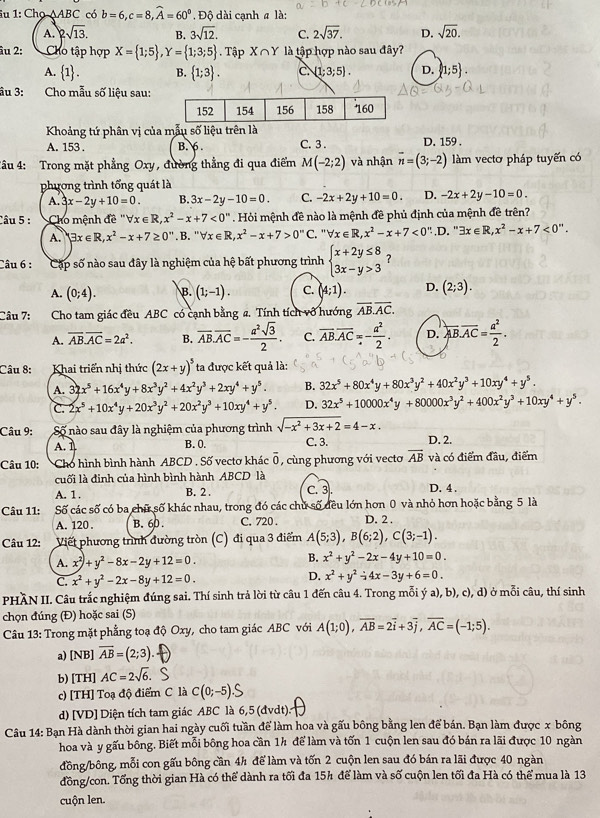 âu 1: Cho △ABC có b = 6, c = 8, Â = 60°. Độ dài cạnh a là:
A. 2√13. B. 3√12. C. 2√37. D. √20.
âu 2: Cho tập hợp X = {1;5}, Y = {1;3;5}. Tập X∩Y là tập hợp nào sau đây?
A. {1}. B. {1;3}. C. {1;3;5}. D. {1;5}.
âu 3: Cho mẫu số liệu sau:
152 154 156 158 160
Khoảng tứ phân vị của mẫu số liệu trên là
A. 153. B. 6. C. 3. D. 159.
Câu 4: Trong mặt phẳng Oxy, đường thẳng đi qua điểm M(−2;2) và nhận n⃗ = (3;−2) làm vectơ pháp tuyến có
phương trình tổng quát là
A. 3x − 2y + 10 = 0. B. 3x − 2y − 10 = 0. C. −2x + 2y + 10 = 0. D. −2x + 2y − 10 = 0.
Câu 5 : Cho mệnh đề "∀x∈ℝ, x² − x + 7 < 0". Hỏi mệnh đề nào là mệnh đề phủ định của mệnh đề trên?
A. "∃x∈ℝ, x² − x + 7 ≥ 0". B. "∀x∈ℝ, x² − x + 7 > 0" C. "∀x∈ℝ, x² − x + 7 < 0". D. "∃x∈ℝ, x² − x + 7 < 0".
Câu 6 : Cặp số nào sau đây là nghiệm của hệ bất phương trình {x + 2y ≤ 8
3x − y > 3 ?
A. (0;4). B. (1;−1). C. (4;1). D. (2;3).
Câu 7: Cho tam giác đều ABC có cạnh bằng a. Tính tích vô hướng AB⃗.AC⃗.
A. AB⃗.AC⃗ = 2a². B. AB⃗.AC⃗ = −a²√3/2. C. AB⃗.AC⃗ = −a²/2. D. AB⃗.AC⃗ = a²/2.
Câu 8: Khai triển nhị thức (2x + y)⁵ ta được kết quả là:
A. 32x⁵ + 16x⁴y + 8x³y² + 4x²y³ + 2xy⁴ + y⁵. B. 32x⁵ + 80x⁴y + 80x³y² + 40x²y³ + 10xy⁴ + y⁵.
C. 2x⁵ + 10x⁴y + 20x³y² + 20x²y³ + 10xy⁴ + y⁵. D. 32x⁵ + 10000x⁴y + 80000x³y² + 400x²y³ + 10xy⁴ + y⁵.
Câu 9: Số nào sau đây là nghiệm của phương trình √−x² + 3x + 2 = 4 − x.
A. 1. B. 0. C. 3. D. 2.
Câu 10: Cho hình bình hành ABCD. Số vectơ khác 0⃗, cùng phương với vectơ AB⃗ và có điểm đầu, điểm
cuối là đỉnh của hình bình hành ABCD là
A. 1. B. 2. C. 3. D. 4.
Câu 11: Số các số có ba chữ số khác nhau, trong đó các chữ số đều lớn hơn 0 và nhỏ hơn hoặc bằng 5 là
A. 120. B. 60. C. 720. D. 2.
Câu 12: Viết phương trình đường tròn (C) đi qua 3 điểm A(5;3), B(6;2), C(3;−1).
A. x² + y² − 8x − 2y + 12 = 0. B. x² + y² − 2x − 4y + 10 = 0.
C. x² + y² − 2x − 8y + 12 = 0. D. x² + y² + 4x − 3y + 6 = 0.
PHẦN II. Câu trắc nghiệm đúng sai. Thí sinh trả lời từ câu 1 đến câu 4. Trong mỗi ý a), b), c), d) ở mỗi câu, thí sinh
chọn đúng (Đ) hoặc sai (S)
Câu 13: Trong mặt phẳng toạ độ Oxy, cho tam giác ABC với A(1;0), AB⃗ = 2i⃗ + 3j⃗, AC⃗ = (−1;5).
a) [NB] AB⃗ = (2;3). Đ
b) [TH] AC = 2√6. S
c) [TH] Toạ độ điểm C là C(0;−5). S
d) [VD] Diện tích tam giác ABC là 6,5 (đvdt). Đ
Câu 14: Bạn Hà dành thời gian hai ngày cuối tuần để làm hoa và gấu bông bằng len để bán. Bạn làm được x bông
hoa và y gấu bông. Biết mỗi bông hoa cần 1h để làm và tốn 1 cuộn len sau đó bán ra lãi được 10 ngàn
đồng/bông, mỗi con gấu bông cần 4h để làm và tốn 2 cuộn len sau đó bán ra lãi được 40 ngàn
đồng/con. Tổng thời gian Hà có thể dành ra tối đa 15h để làm và số cuộn len tối đa Hà có thể mua là 13
cuộn len.